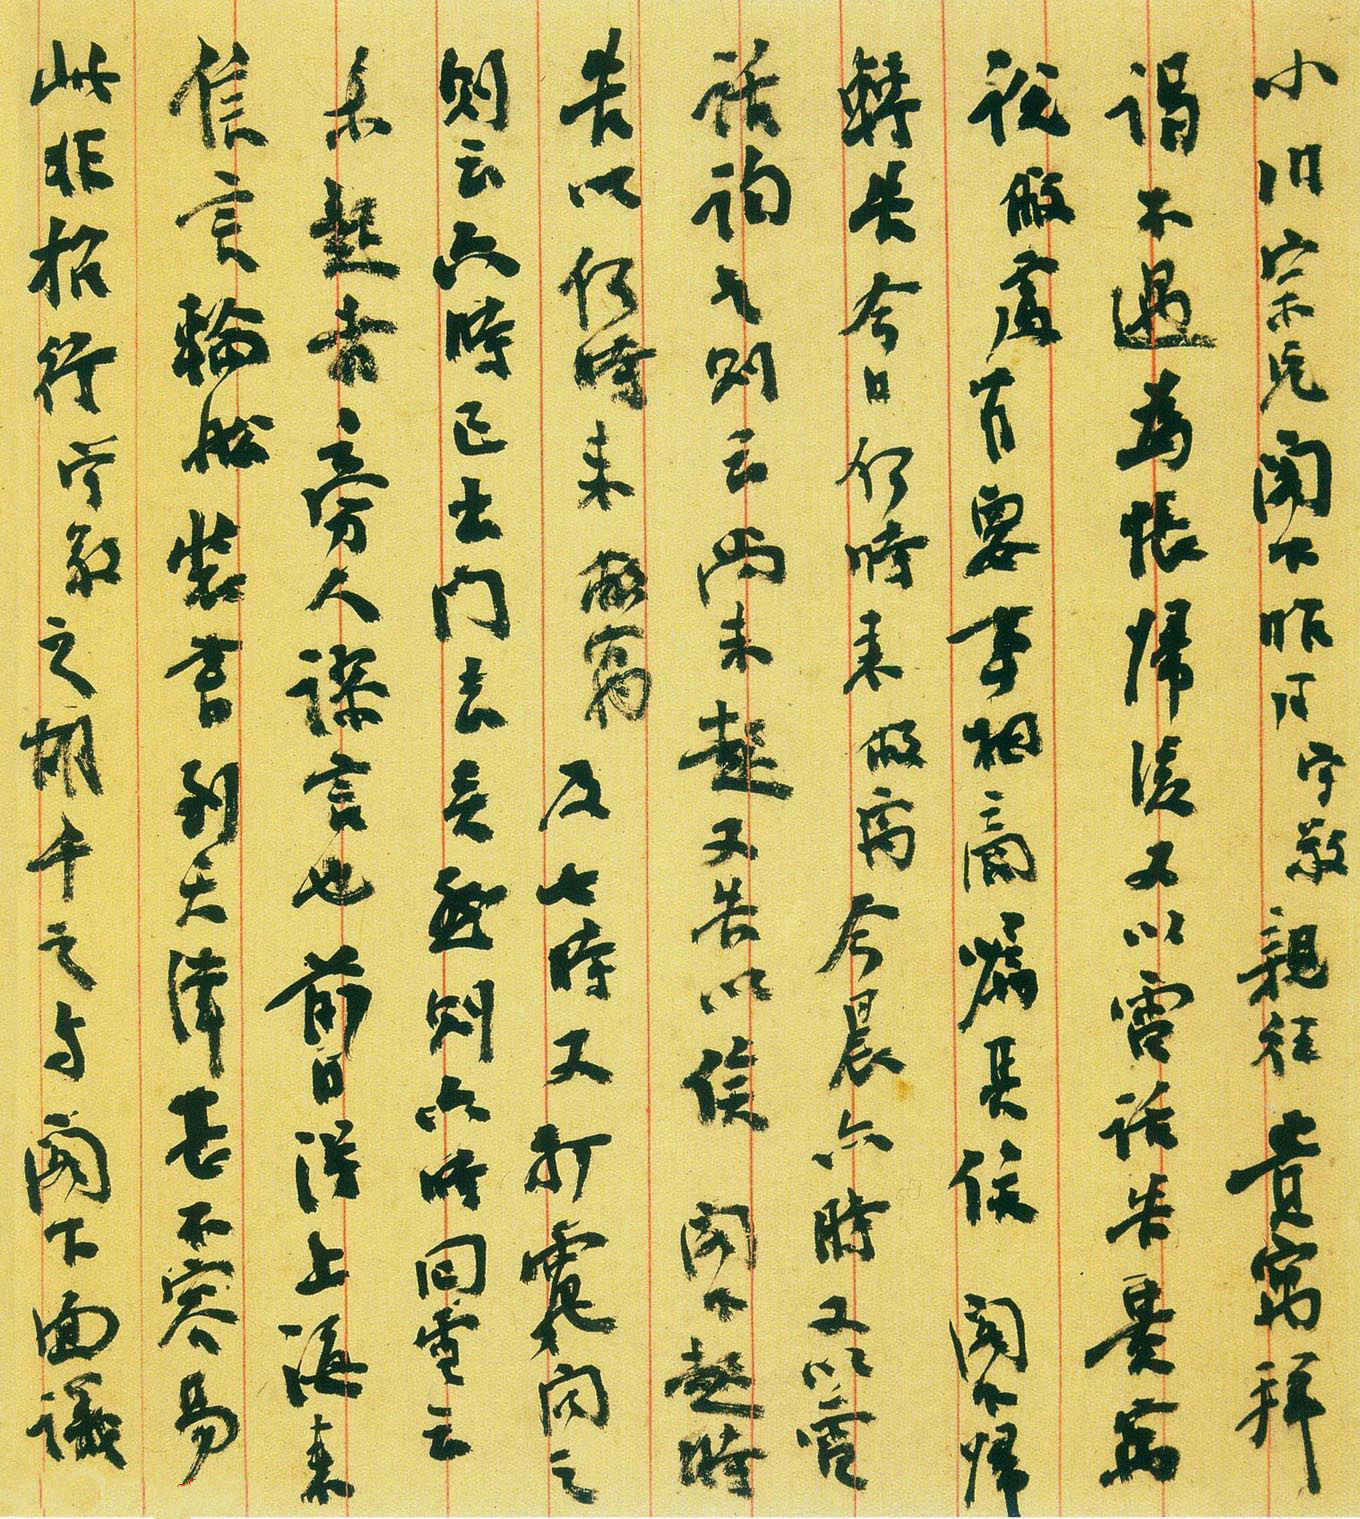 小川宗兄閣下昨日守敬親往貴寓拜
謁不遇為悵歸後又以電話告貴寓
說敝處有要事相商囑其俟閣下歸
轉告今日何時來敝寓今晨六時又以電
話詢之則云尚未起又告以俟閣下起時
告以何時來敝寓及七時又打電問之
則云六時已出門去矣然則六時回電云
未起者旁人謬言也前日得上海來
信言輪船裝書到天津甚不容易
此非招行守敬之胡千之与閣下面議